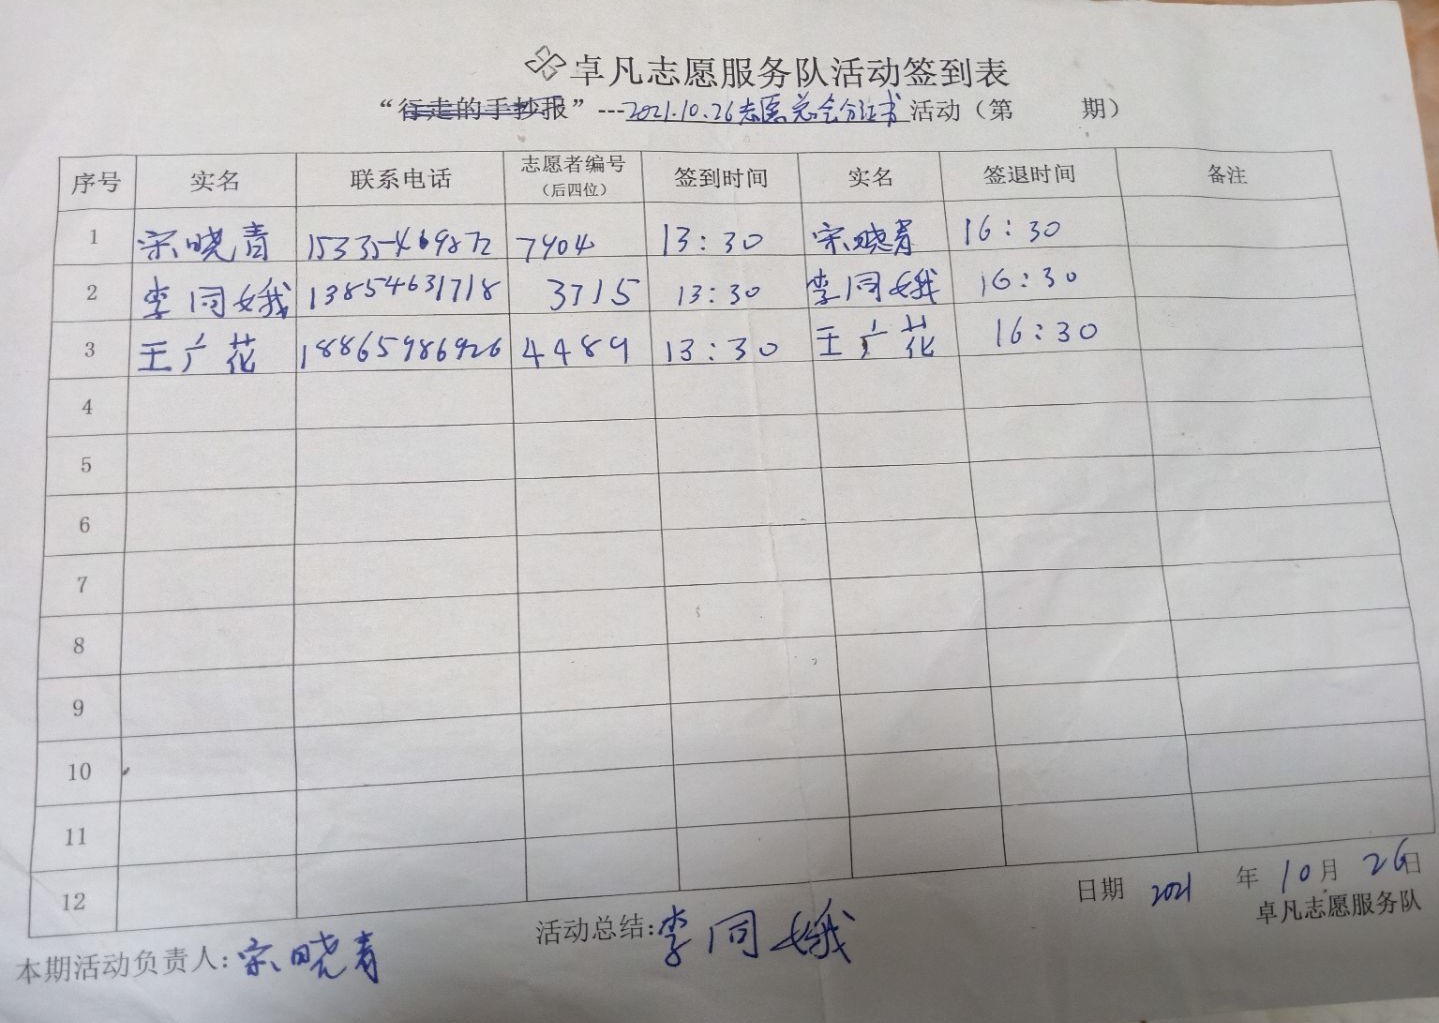 卓凡志愿服务队活动签到表
“行走的手抄报”---2021.10.26志愿总会分证书活动（第 期）
序号 实名 联系电话 志愿者编号（后四位） 签到时间 实名 签退时间 备注
1 宋晓青 15335469872 7904 13:30 宋晓青 16:30
2 李同娥 13854631718 3715 13:30 李同娥 16:30
3 王广花 18865986926 4489 13:30 王广花 16:30
4
5
6
7
8
9
10
11
12
日期 2021 年 10月 26日
卓凡志愿服务队
本期活动负责人:宋晓青 活动总结:李同娥